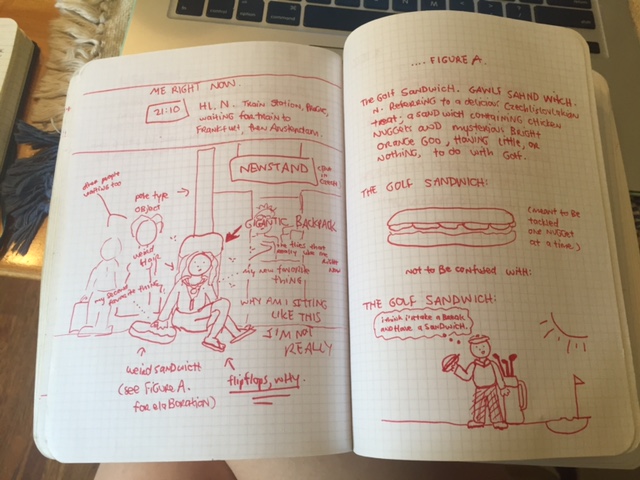 ME RIGHT NOW.
21:10
HL. N. TRAIN STATION, PRAGUE,
WAITING FOR TRAIN TO
FRANKFURT, THEN AMSTERDAM.
NEWSTAND
other people
waiting too
pole type
object
GIGANTIC BACKPACK
weird
my new favorite
thing
my second
favorite thing
WHY AM I SITTING
LIKE THIS
I'M NOT
REALLY
weird sandwich
(see FIGURE A.
for elaboration)
flipflops, natty.
.... FIGURE A.
THE GOLF SANDWICH. GAWLF SAHND WITCH.
N. REFERRING TO A DELICIOUS
TREAT; A SANDWICH CONTAINING CHICKEN
NUGGETS AND MYSTERIOUS BRIGHT
ORANGE GOO, HAVING LITTLE, OR
NOTHING, TO DO WITH GOLF.
THE GOLF SANDWICH:
(MEANT TO BE
TACKLED
ONE NUGGET
AT A TIME)
NOT TO BE CONFUSED WITH:
THE GOLF SANDWICH:
i think i'll take a BREAK
AND HAVE A SANDWICH.